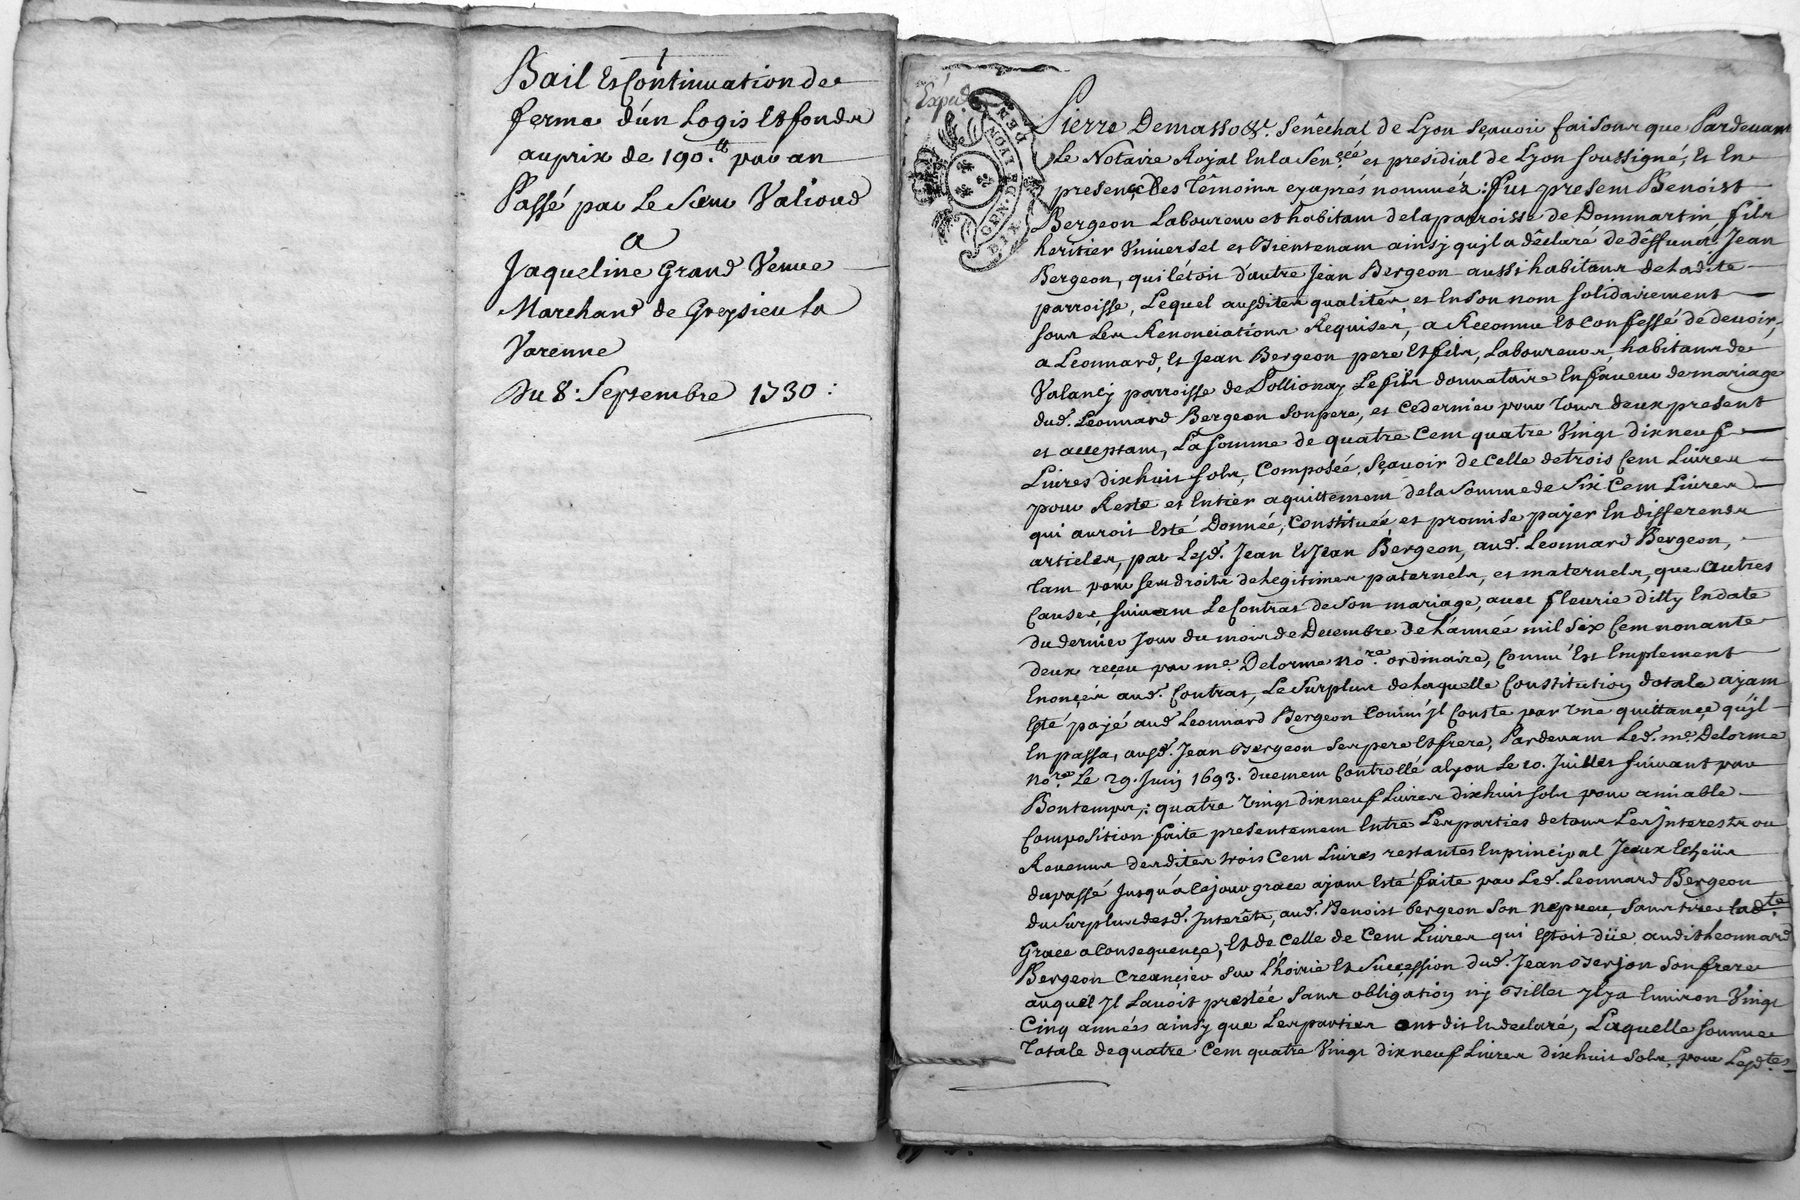 Bail Et Continuation de
ferme d'un Logis Et fonds
au prix de 190.tt par an
Passé par Le Sieur Valioud
a
Jaqueline Grand Veuve
Marchand de Gresieu la
Varenne
Du 8: Septembre 1730:
Expéd
GEN. DE LYON
DIX DEN
Pierre Demasso &c. Senêchal de Lyon sçavoir faisons que Pardevant
Le Notaire Royal En la Sen.ceé et presidial de Lyon soussigné, Et En
presençe des Têmoins cy aprés nommés: fut present Benoist
Bergeon Laboureur et habitant de la parroisse de Dommartin fils
heritier Universel et Bientenant ainsy qu'jl a dêclaré de dêffunct Jean
Bergeon, qui l'étoit d'autre Jean Bergeon aussi habitans de la dite
parroisse, Lequel ausdites qualités et En son nom solidairement
sous Les Renonciations Requises, a Reconnu Et confessé de devoir,
a Leonnard, Et Jean Bergeon pere Et fils, Laboureurs, habitans de
Valancy parroisse de Pollionay Le fils donnataire En faveur de mariage
dud. Leonnard Bergeon son pere, et Ce dernier pour Tous deux present
et acceptant, La somme de quatre Cent quatre Vingt dix neuf
Livres dix huit sols, Composée, Sçavoir de Celle de trois Cent Livres
pour Reste et Entier aquittement de la Somme de Six Cent Livres
qui auroit Esté Donnée, Constituée et promise payer En differends
articles, par Lesd. Jean Et Jean Bergeon, aud. Leonnard Bergeon,
Tant pour ses droits de Legitimes paternels, et maternels, que Autres
Causes, suivant Le Contrat de Son mariage, avec fleurie ditty En date
du dernier Jour du mois de Decembre de L'année mil Six Cent nonante
deux reçeu par me. Delorme no.re ordinaire, Comm' Est Emplement
Enonçés aud. Contrat, Le Surplus de Laquelle Constitution dotale ayant
Esté payé aud Leonnard Bergeon Comm' jl Conste par Une quittançe qu'jl
En passa, ausd. Jean Bergeon Ses pere Et frere, Pardevant Led. me. Delorme
no.re Le 29. Juin 1693. duement Controllé a Lyon Le 10. Juillet suivant par
Bontemps: quatre Vingt dix neuf Livres dix huit sols pour amiable
Composition faite presentement Entre Les parties de tous Les Jnterests ou
Revenus desdites trois Cent Livres restantes En principal Jceux Echeüs
du passé Jusqu'à Ce jour grace ayant Esté faite par Led. Leonnard Bergeon
du Surplus desd. Jnterêts, aud. Benoist bergeon Son nepveu, Sans tirer lad.te
Grace a Consequençe, Et de Celle de Cent Livres qui Estoit düe audit Leonnard
Bergeon Creançier Sur L'hoirie Et Suçcession dud. Jean Berjon Son frere
auquel Jl L'avoit prestée Sans obligation ny Billet jl y a Environ Vingt
Cinq années ainsy que Les parties ont dit Et declaré, Laquelle Somme
Totale de quatre Cent quatre Vingt dix neuf Livres dix huit Sols, pour Lesd.tes